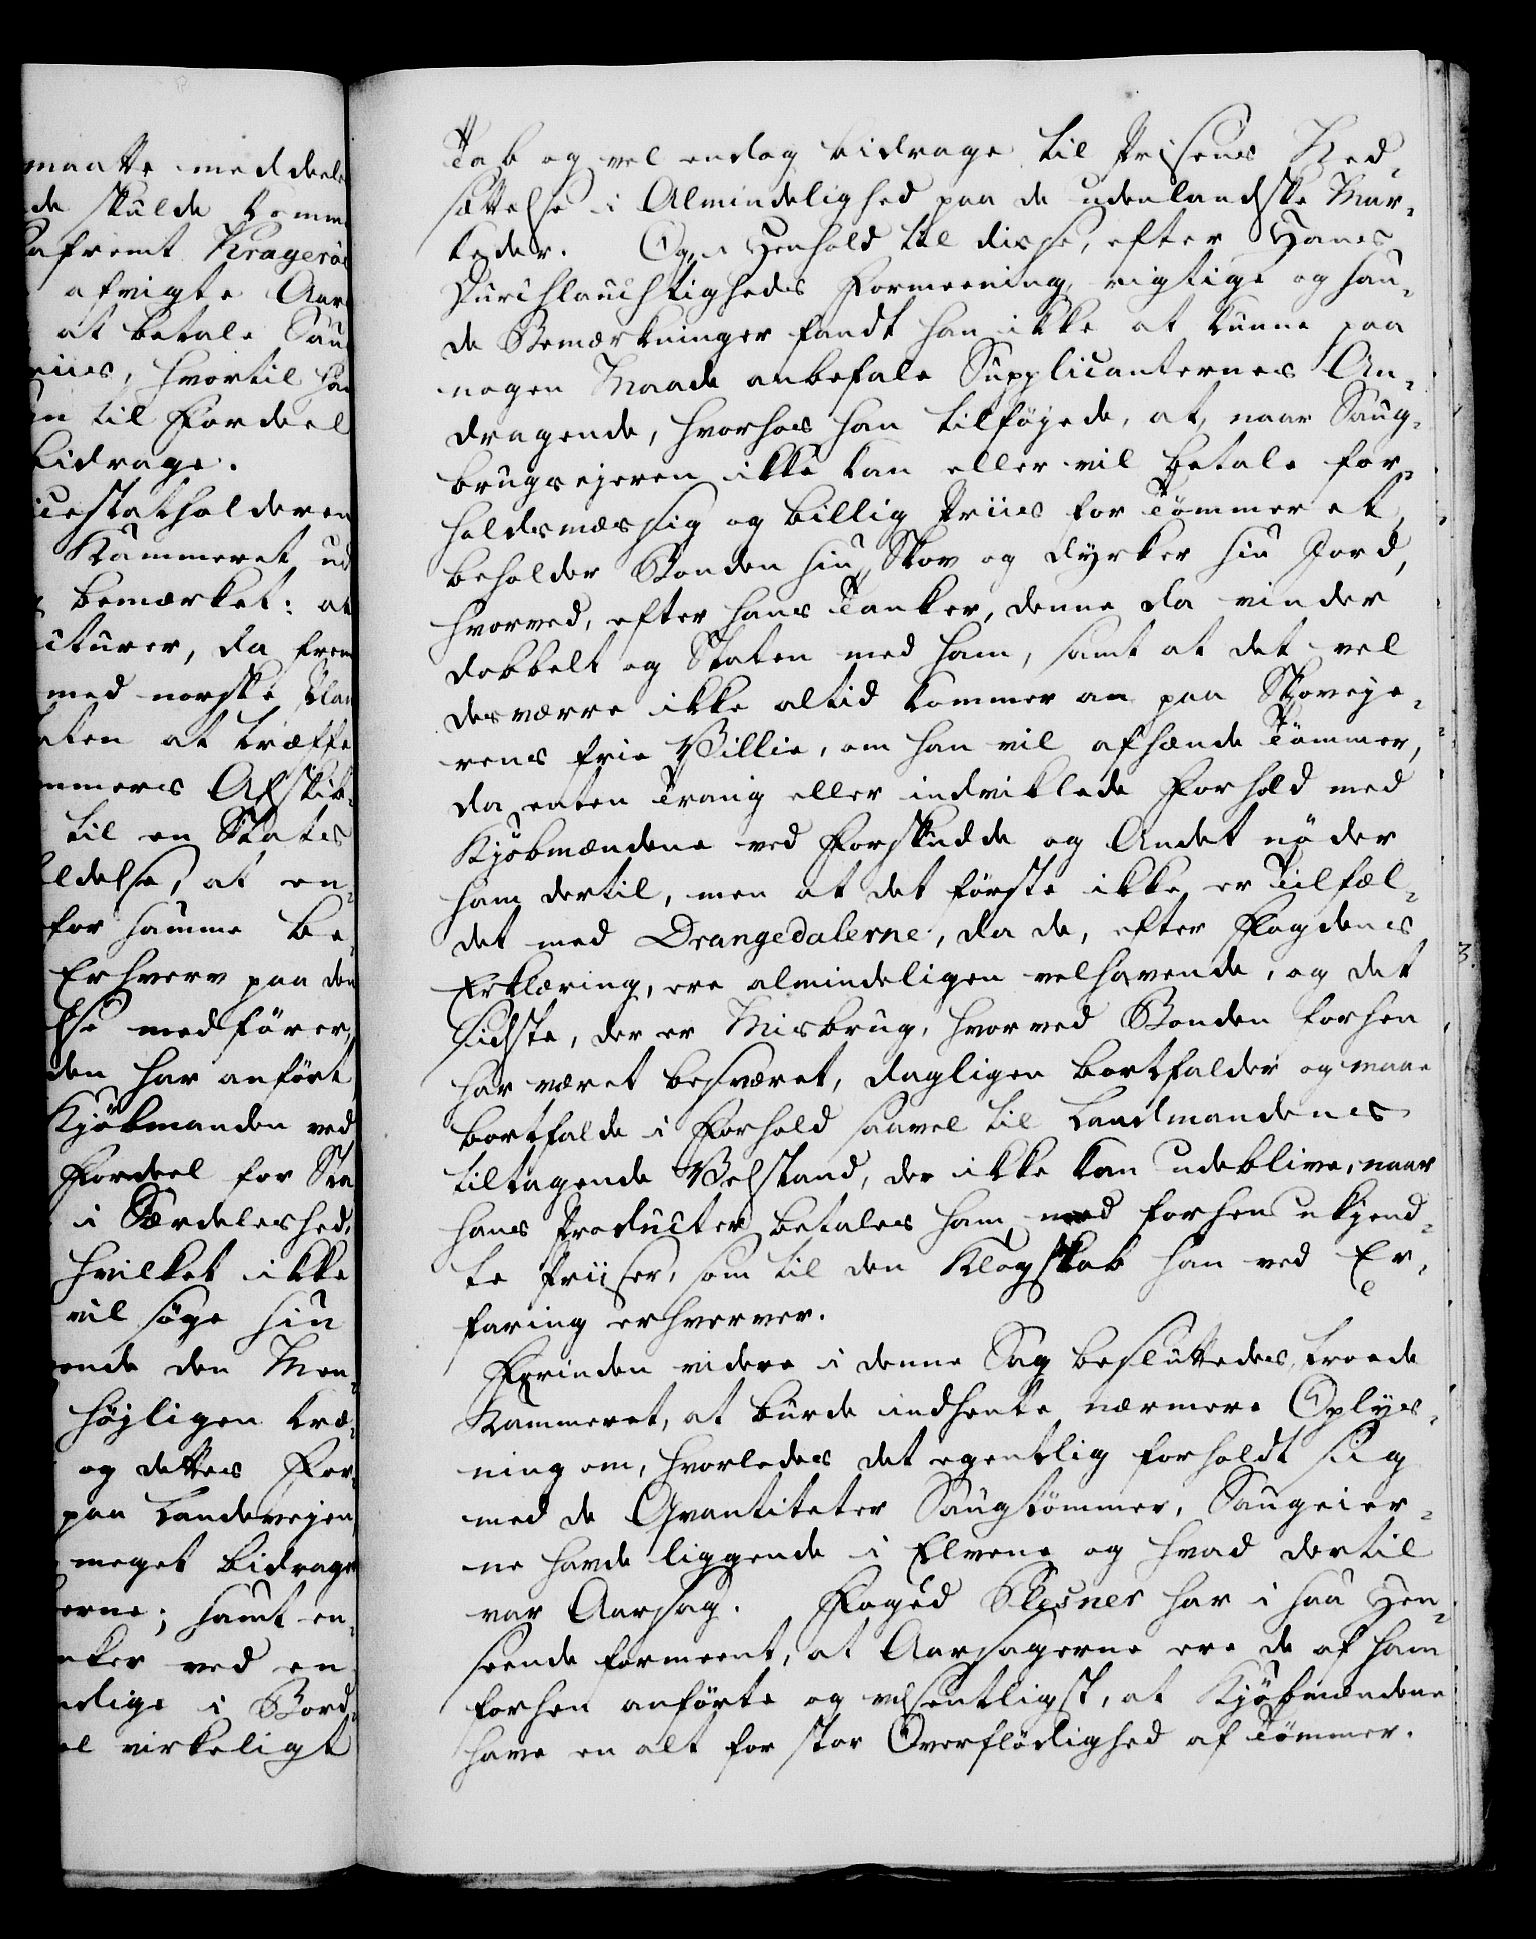 maatte meddeele
de skulde komme
afremt Krageröe
afvigte Aar
at betale Sau
riis, hvortil han
en til Fordeel
bidrage.
icestatholderen
Kammeret ud
bemærket: at
cturer, da frem
med norske Plan
aten at træffe
mmers Afskib-
til en Stats
ldelse, at en-
for samme be-
Erhverv paa den
lse medförer,
den har anfört
Kjöbmanden ved
Fordeel for Sta
i Særdeleshed,
hvilket ikke
vil söge sin
ende den Men-
höjligen træ-
og dettes For-
paa Landevejen,
meget bidrage
erne; samt en-
nker ved en
elige i Bord-
el virkeligt
Tab og vel endog bidrage til Prisens Ned-
sættelse i Almindelighed paa de udenlandske Mar-
keder. Og i Henhold til disse, efter Hans
Durchlauchtigheds Formeening, rigtige og san-
de Bemærkninger fandt han ikke at kunne paa
nogen Maade anbefale Supplicanternes An-
dragende, hvorhos han tilföjede, at, naar Saug-
brugsejeren ikke kan eller vil betale for-
holdsmæssig og billig Priis for Tömmeret,
beholder Bonden sin Skov og dyrker sin Jord,
hvorved, efter hans Tanker, denne da vinder
dobbelt og Staten med ham, samt at det vel
desværre ikke altid kommer an paa Skoveje-
rens frie Villie, om han vil afhænde Tömmer,
da enten Trang eller indviklede Forhold med
Kjöbmændene ved Forskudde og Andet nöder
ham dertil, men at det förste ikke er Tilfæl-
det med Drangedalerne, da de, efter Fogdens
Erklæring, ere almindeligen velhavende, og det
sidste, der er Misbrug, hvorved Bonden forhen
har været besværet, dagligen bortfalder og maae
bortfalde i Forhold saavel til Landmandens
tiltagende Velstand, der ikke kan udeblive, naar
hans Producter betales ham med forhen ukjend-
te Priiser, som til den Klogskab han ved Er-
faring erhverver.
Forinden videre i denne Sag besluttedes, troede
Kammeret, at burde indhente nærmere Oplys-
ning om, hvorledes det egentlig forholdt sig
med de Qvantiteter Saugtömmer, Saugeier-
ne havde liggende i Elvene og hvad dertil
var Aarsag. Foged har i saa Hen-
seende formeent, at Aarsagerne ere de af ham
forhen anförte og væsentligst, at Kjöbmændene
have en alt for stor Overflödighed af Tömmer.